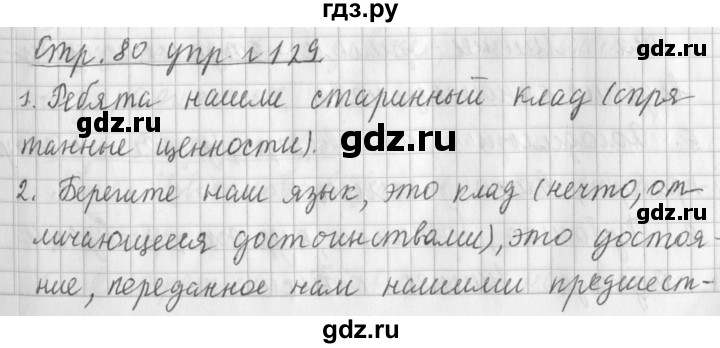 гдз.ру
Стр. 80 упр. № 129.
1. Ребята нашли старинный клад (спря-
танные ценности).
gdz.ru gdz.ru
2. Берегите наш язык, это клад (нечто, от-
личающееся достоинствами), это достоя-
ние, переданное нам нашими предшест-
gdz.ru gdz.ru